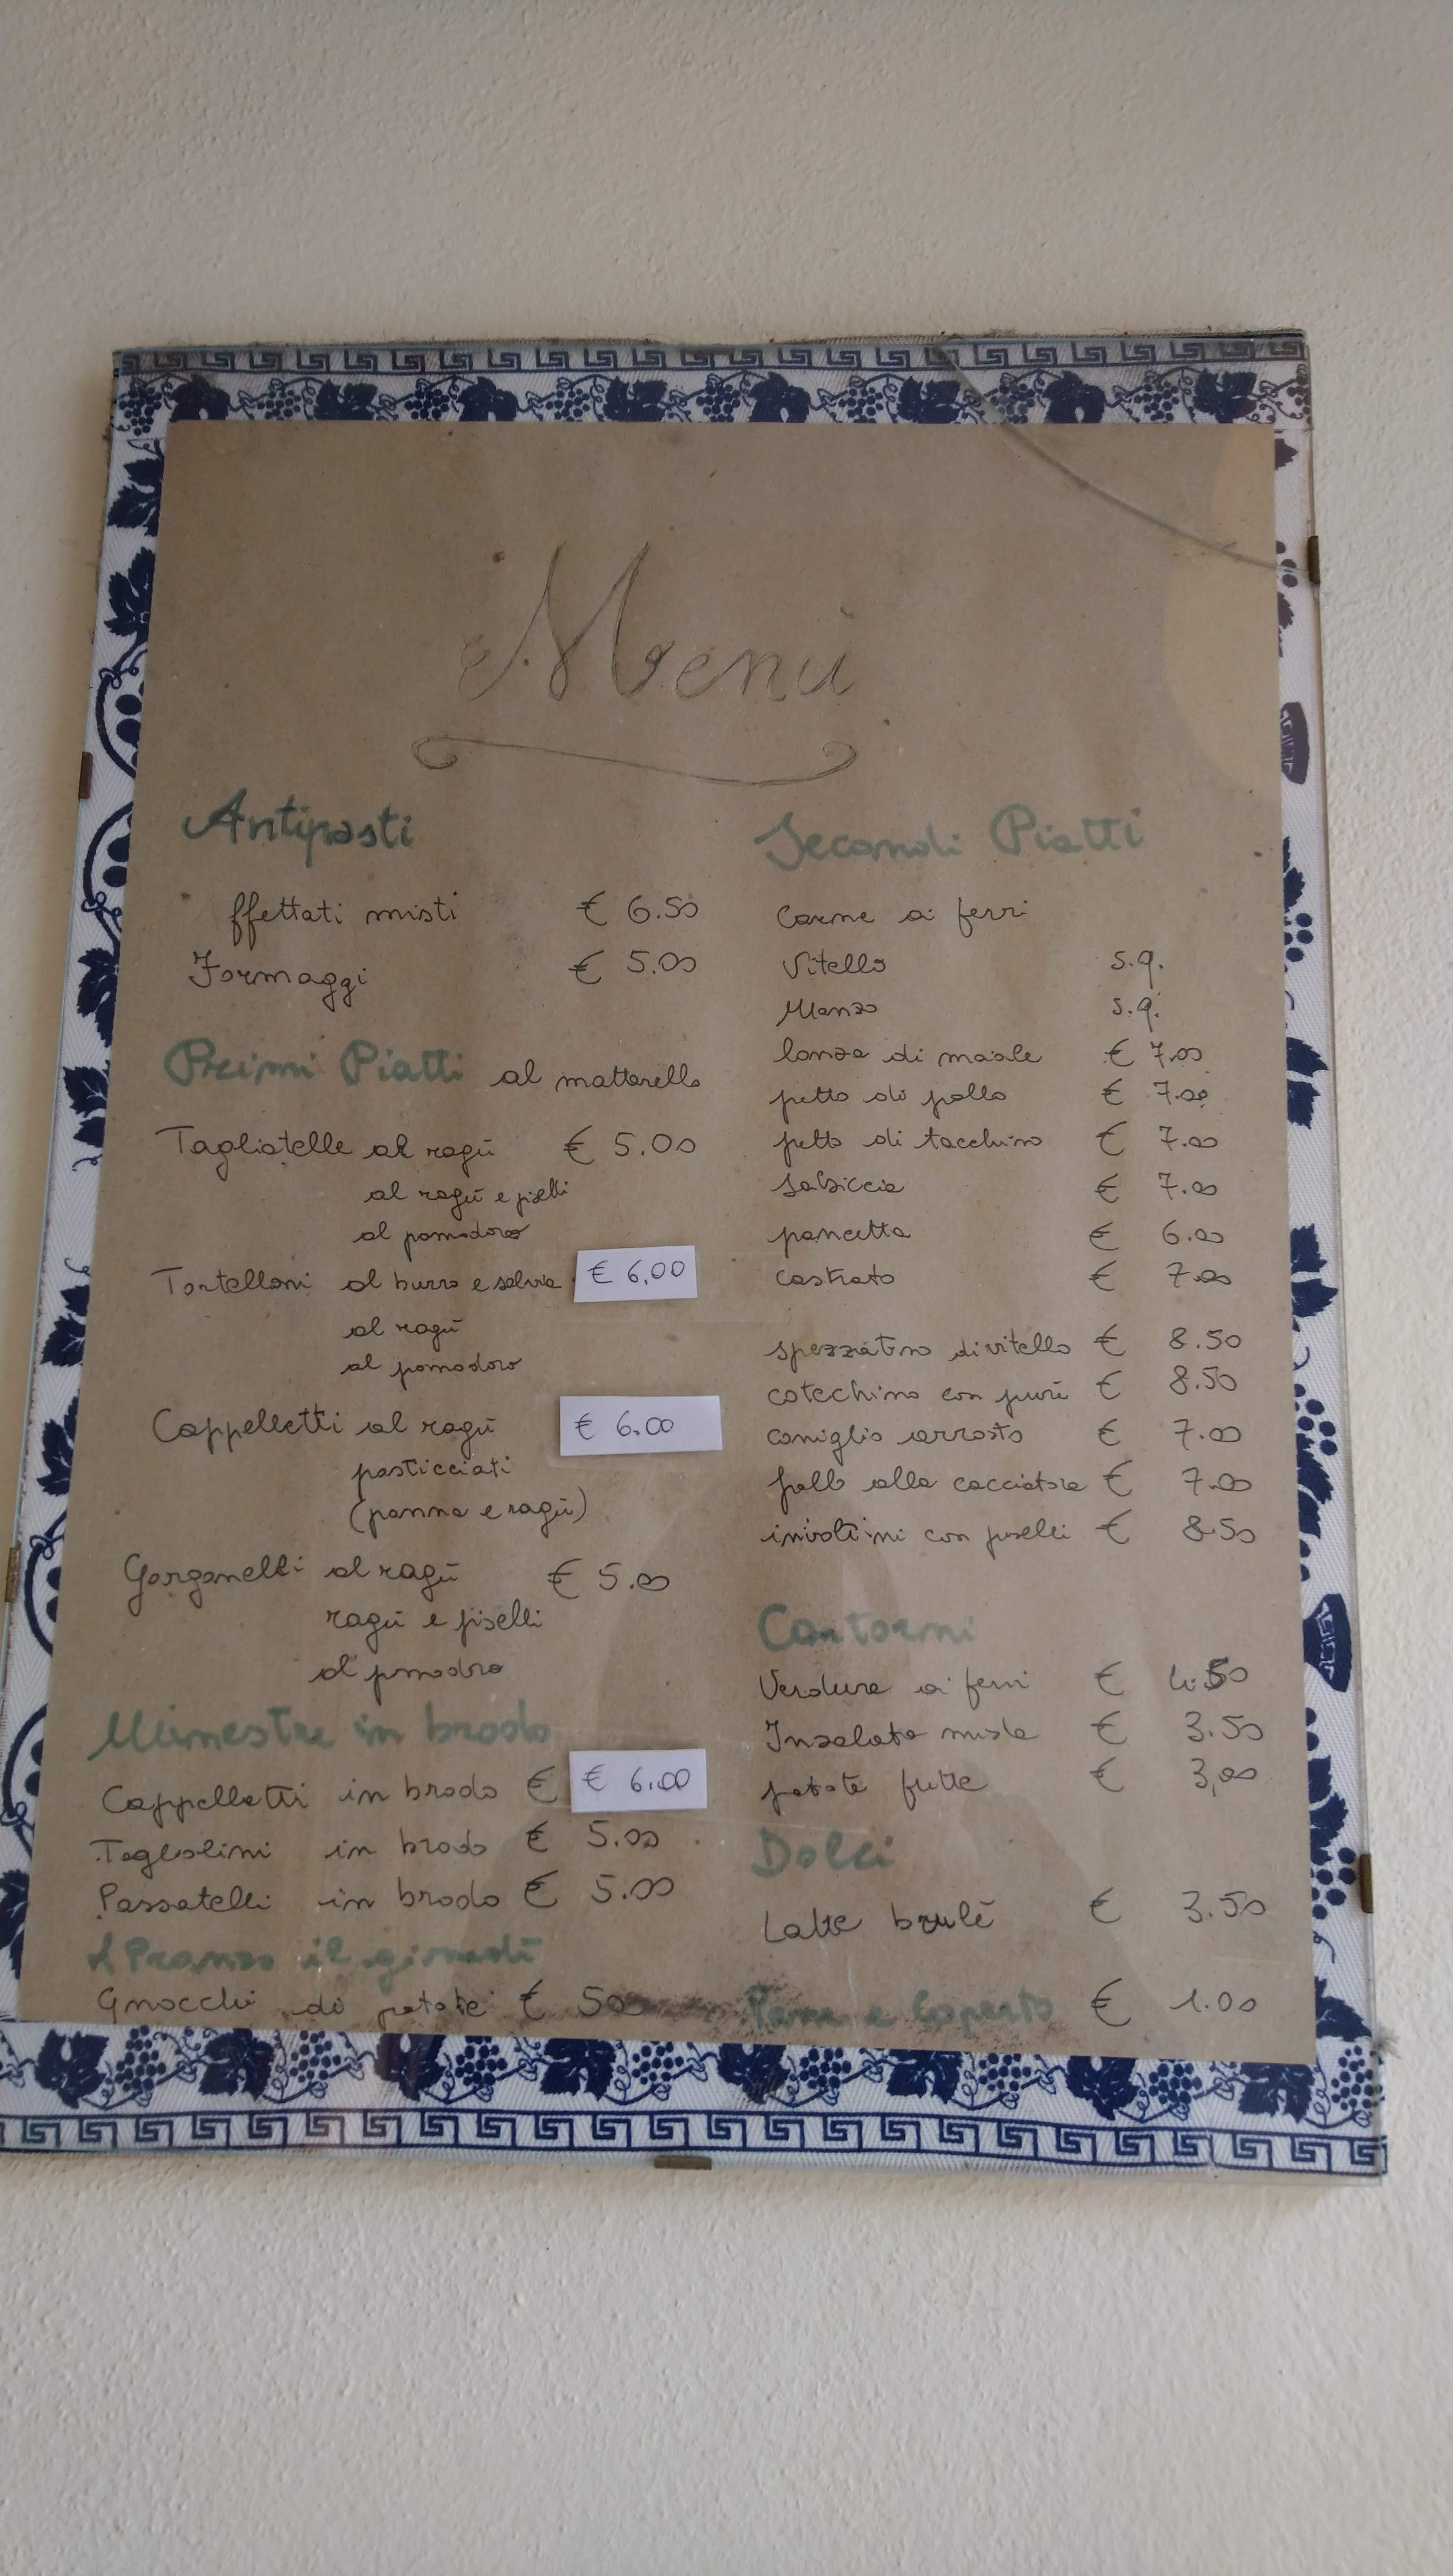 Menù
Antipasti
ffettati misti € 6.50
Formaggi € 5.00
Primi Piatti al mattarello
Tagliatelle al ragù € 5.00
al ragù e piselli
al pomodoro
Tortelloni al burro e salvia € 6,00
al ragù
al pomodoro
Cappelletti al ragù € 6.00
pasticciati
(panna e ragù)
Garganelli al ragù € 5.00
ragù e piselli
al pmodoro
Minestre in brodo
Cappelletti in brodo € € 6.00
Tagliolini in brodo € 5.00
Passatelli in brodo € 5.00
Pranzo il giovedì
Gnocchi di patate € 500
Secondi Piatti
Carne ai ferri
Vitello s.q.
Manzo s.q.
lonza di maiale € 7.00
petto di pollo € 7.00
petto di tacchino € 7.00
salsiccia € 7.00
pancetta € 6.00
castrato € 7.00
spezzatino di vitello € 8.50
cotechino con purè € 8.50
coniglio arrosto € 7.00
pollo alla cacciatora € 7.00
involtini con piselli € 8.50
Contorni
Verdure ai ferri € 4.50
Insalata mista € 3.50
patate fritte € 3,00
Dolci
Latte brulè € 3.50
Pane e Coperto € 1.00